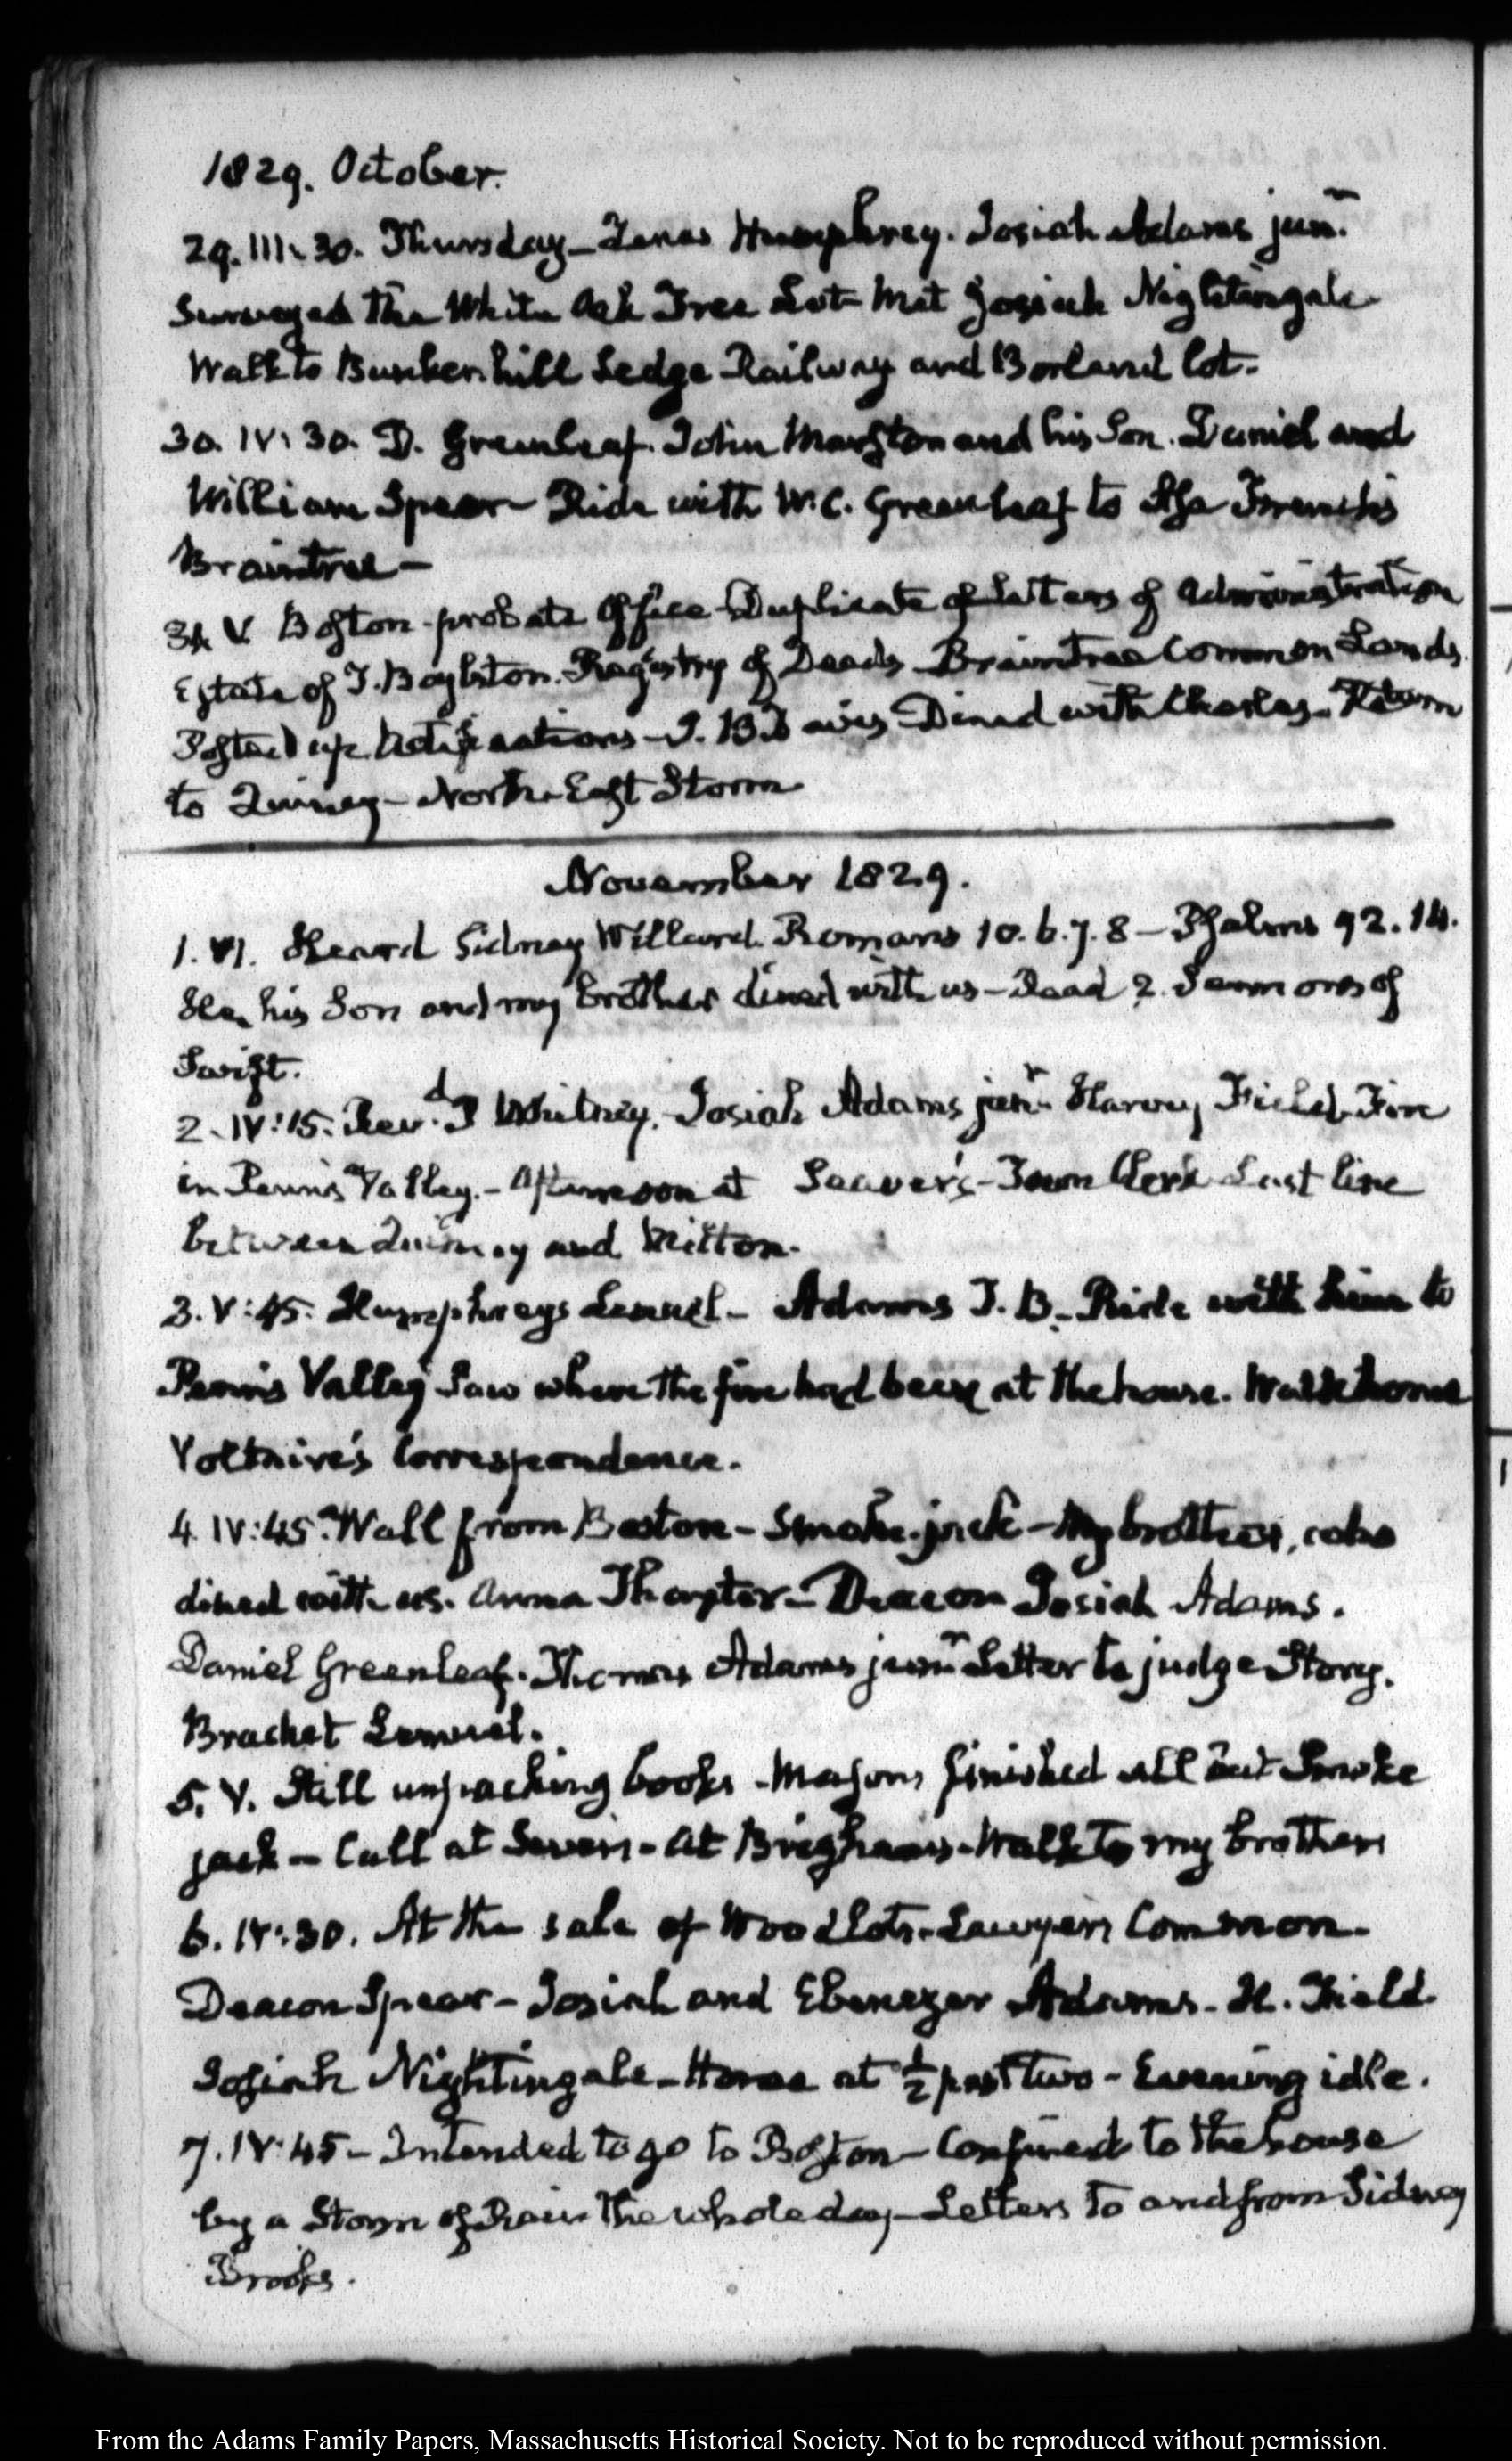 1829. October.
29. III:30. Thursday – Humphrey. Josiah Adams junr.
Surveyed the White Oak Tree Lot – Met Josiah Nightingale
Walk to Bunkerhill Ledge Railway and Borland lot.
30. IV:30. D. Greenleaf. John Marston and his Son. Daniel and
William Spear – Ride with W. C. Greenleaf to Asa French's
Braintree –
31. V. Boston – probate Office – Duplicate of Letters of administration
Estate of T. Boylston. Registry of Deeds – Braintree Common Lands.
Posted up Notifications – I. P. Davis – Dined with Charles – Return
to Quincy – North-East Storm
November 1829.
1. VI. Heard Sidney Willard. Romans 10. 6. 7. 8 – Psalms 92. 14.
He, his Son and my brother dined with us – Read 2. Sermons of
Swift.
2. IV:15. Revd. P Whitney. Josiah Adams junr. Harvey Field – Fire
in Penn's Valley. – Afternoon at Seaver's – Town Clerk – Last line
between Quincy and Milton.
3. V:45. Humphreys Lemuel – Adams T. B. – Ride with him to
Penn's Valley saw where the fire had been at the house. Walk home
Voltaire's Correspondence.
4. IV:45. Wall from Boston – Smoke-jack – My brother, who
dined with us. Anna Thaxter – Deacon Josiah Adams.
Daniel Greenleaf. Thomas Adams junr. Letter to judge Story.
Bracket Lemuel.
5. V. Still unpacking books – Masons finished all but Smoke
jack – Call at – At Brigham's – Walk to my brothers
6. IV:30. At the sale of Wood lots – Lawyer's Common –
Deacon Spear – Josiah and Ebenezer Adams – H. Field.
Josiah Nightingale – Home at ½ past two – Evening idle.
7. IV:45 – Intended to go to Boston – Confined to the house
by a Storm of Rain the whole day – Letters to and from Sidney
Brooks.
From the Adams Family Papers, Massachusetts Historical Society. Not to be reproduced without permission.